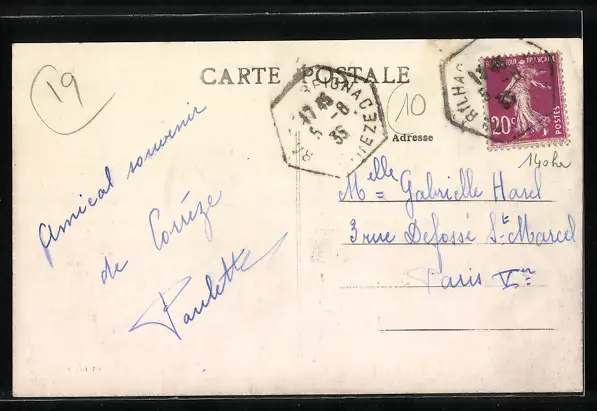 19
CARTE POSTALE
TREIGNAC
17 45
5 -8
35
CORREZE
10
RILHAC
RÉPUBLIQUE FRANÇAISE
20c
POSTES
Adresse
140ha
Amical souvenir
de Corrèze
Paulette
Melle Gabrielle Harel
3 rue Defossé St Marcel
Paris Vm